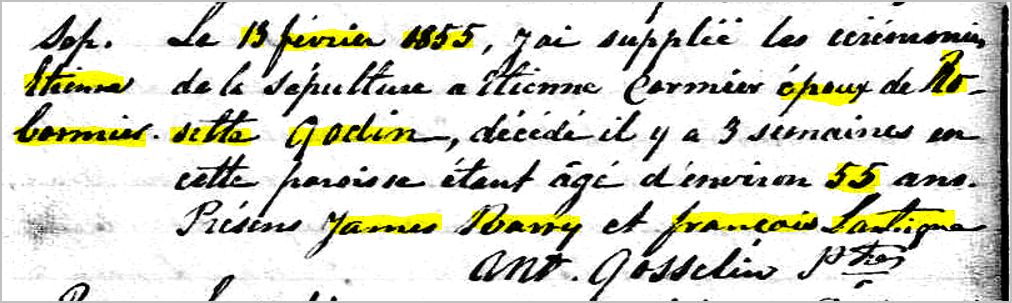 Sep. Le 13 février 1855, j'ai supplée les cérémonies
Etienne de la sépulture a Etienne Cormier époux de Ro-
Cormier. sette Godin, décédé il y a 3 semaines en
cette paroisse étant âgé d'environ 55 ans.
Présens James Barry et françois Lantigne
Ant. Gosselin Ptre